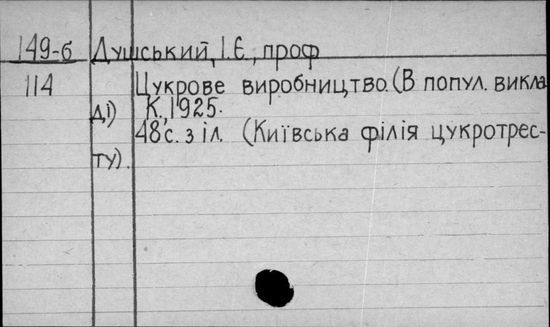 149-б Душський, І.Є., проф
114 Цукрове виробництво. (В попул. викла
ді) К., 1925.
48 с. з іл. (Київська філія цукротрес-
ту).